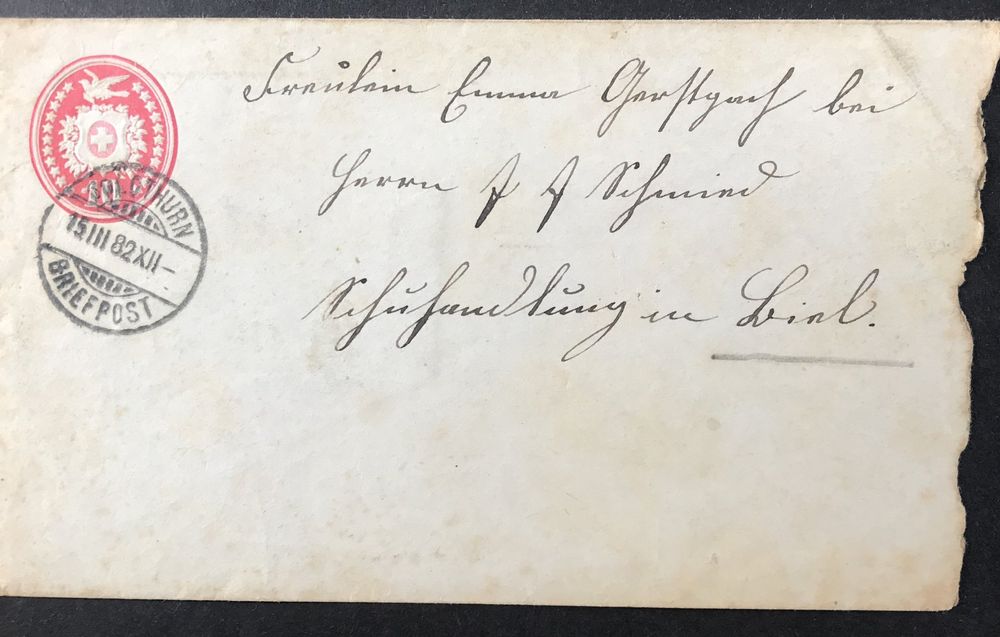 10
SOLOTHURN
15.III.82.XII-
BRIEFPOST
Fräulein Emma Gerstbach bei
Herrn J J Schmied
Schuhandlung in Biel.